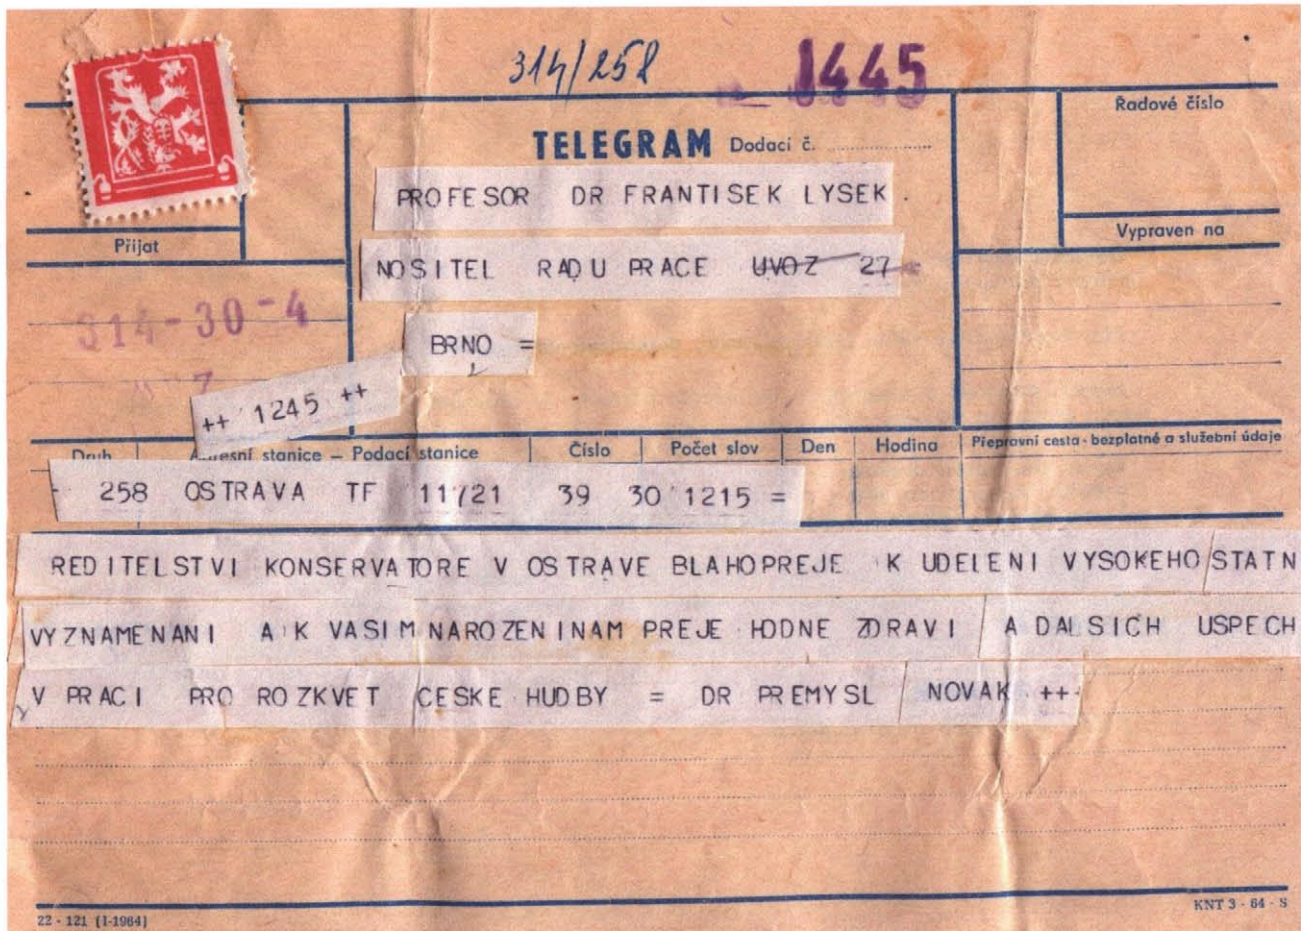 314/258
1445
TELEGRAM Dodací č.
Řadové číslo
PROFESOR DR FRANTISEK LYSEK
Přijat
Vypraven na
NOSITEL RADU PRACE UVOZ 27
314-30-4
BRNO =
++ 1245 ++
Druh Adresní stanice – Podací stanice Číslo Počet slov Den Hodina Přepravní cesta - bezplatné a služební údaje
258 OSTRAVA TF 11/21 39 30 1215 =
REDITELSTVI KONSERVATORE V OSTRAVE BLAHOPREJE K UDELENI VYSOKEHO STATN
VYZNAMENANI A K VASIM NAROZENINAM PREJE HODNE ZDRAVI A DALSICH USPECH
V PRACI PRO ROZKVET CESKE HUDBY = DR PREMYSL NOVAK ++
22 - 121 (I-1964)
KNT 3 - 64 - S